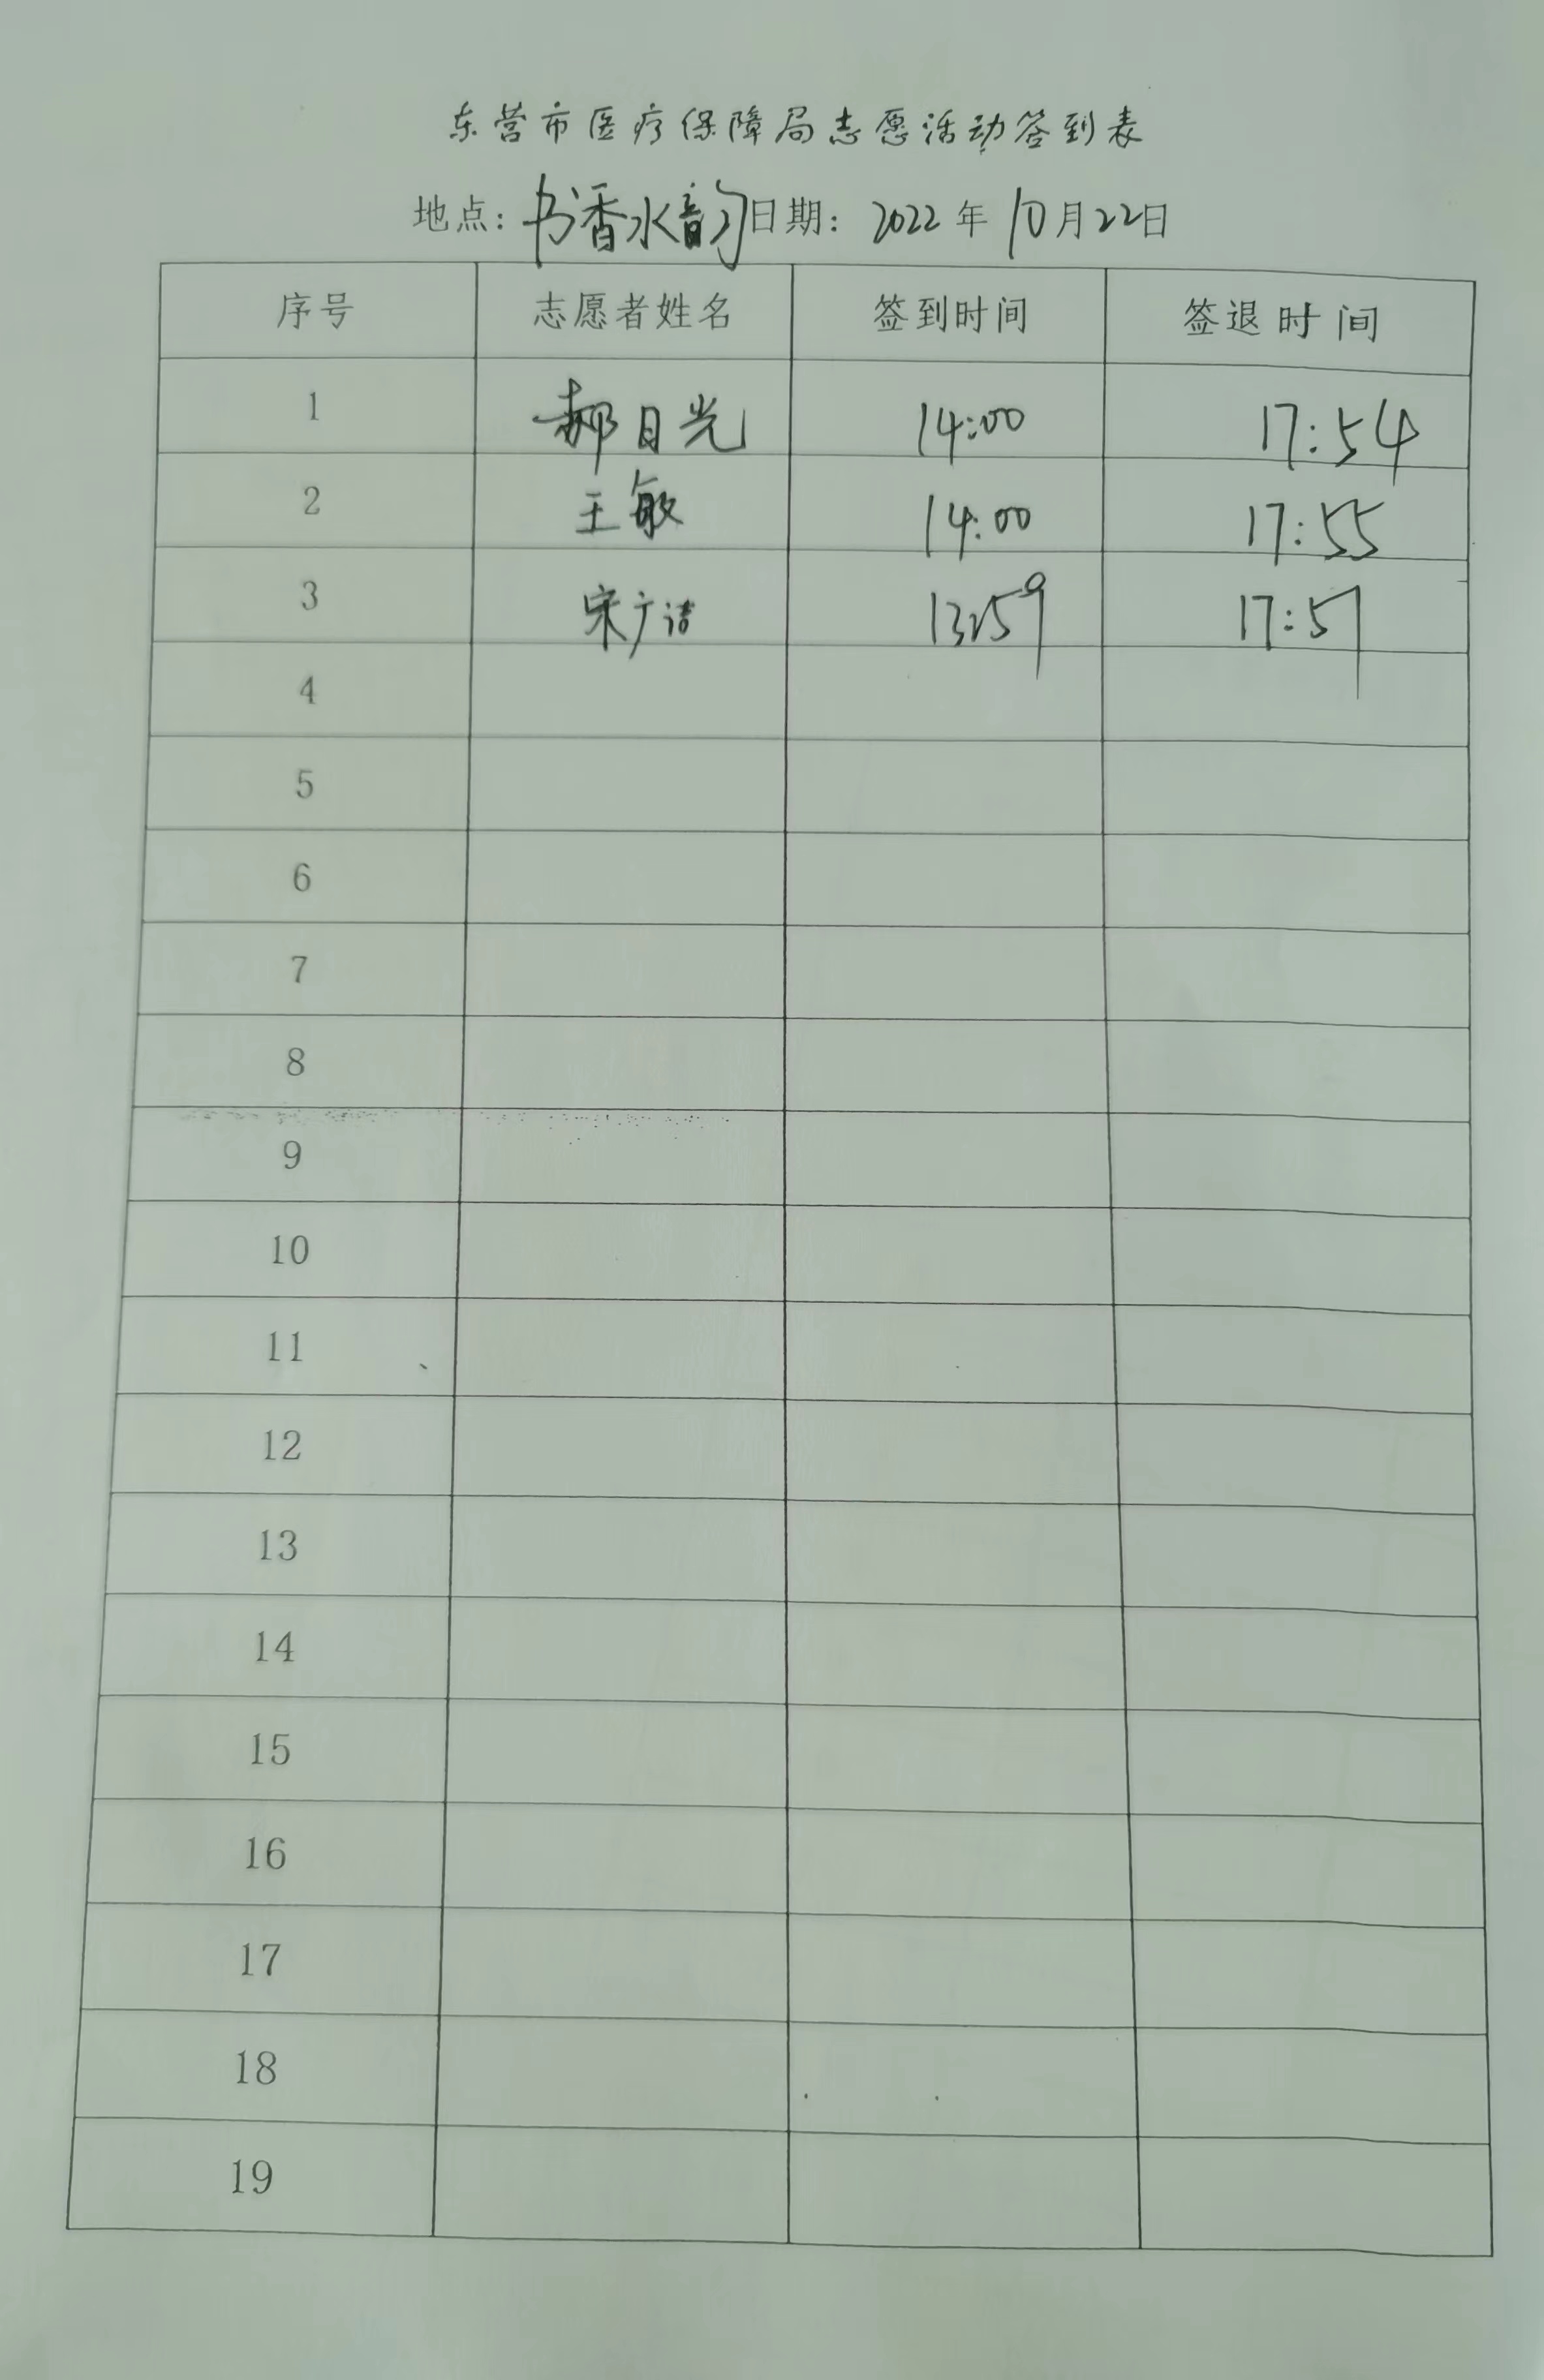 东营市医疗保障局志愿活动签到表
地点：书香水韵 日期：2022年10月22日
序号 志愿者姓名 签到时间 签退时间
1 郝日光 14:00 17:54
2 王敏 14:00 17:55
3 宋广洁 13:59 17:57
4
5
6
7
8
9
10
11
12
13
14
15
16
17
18
19